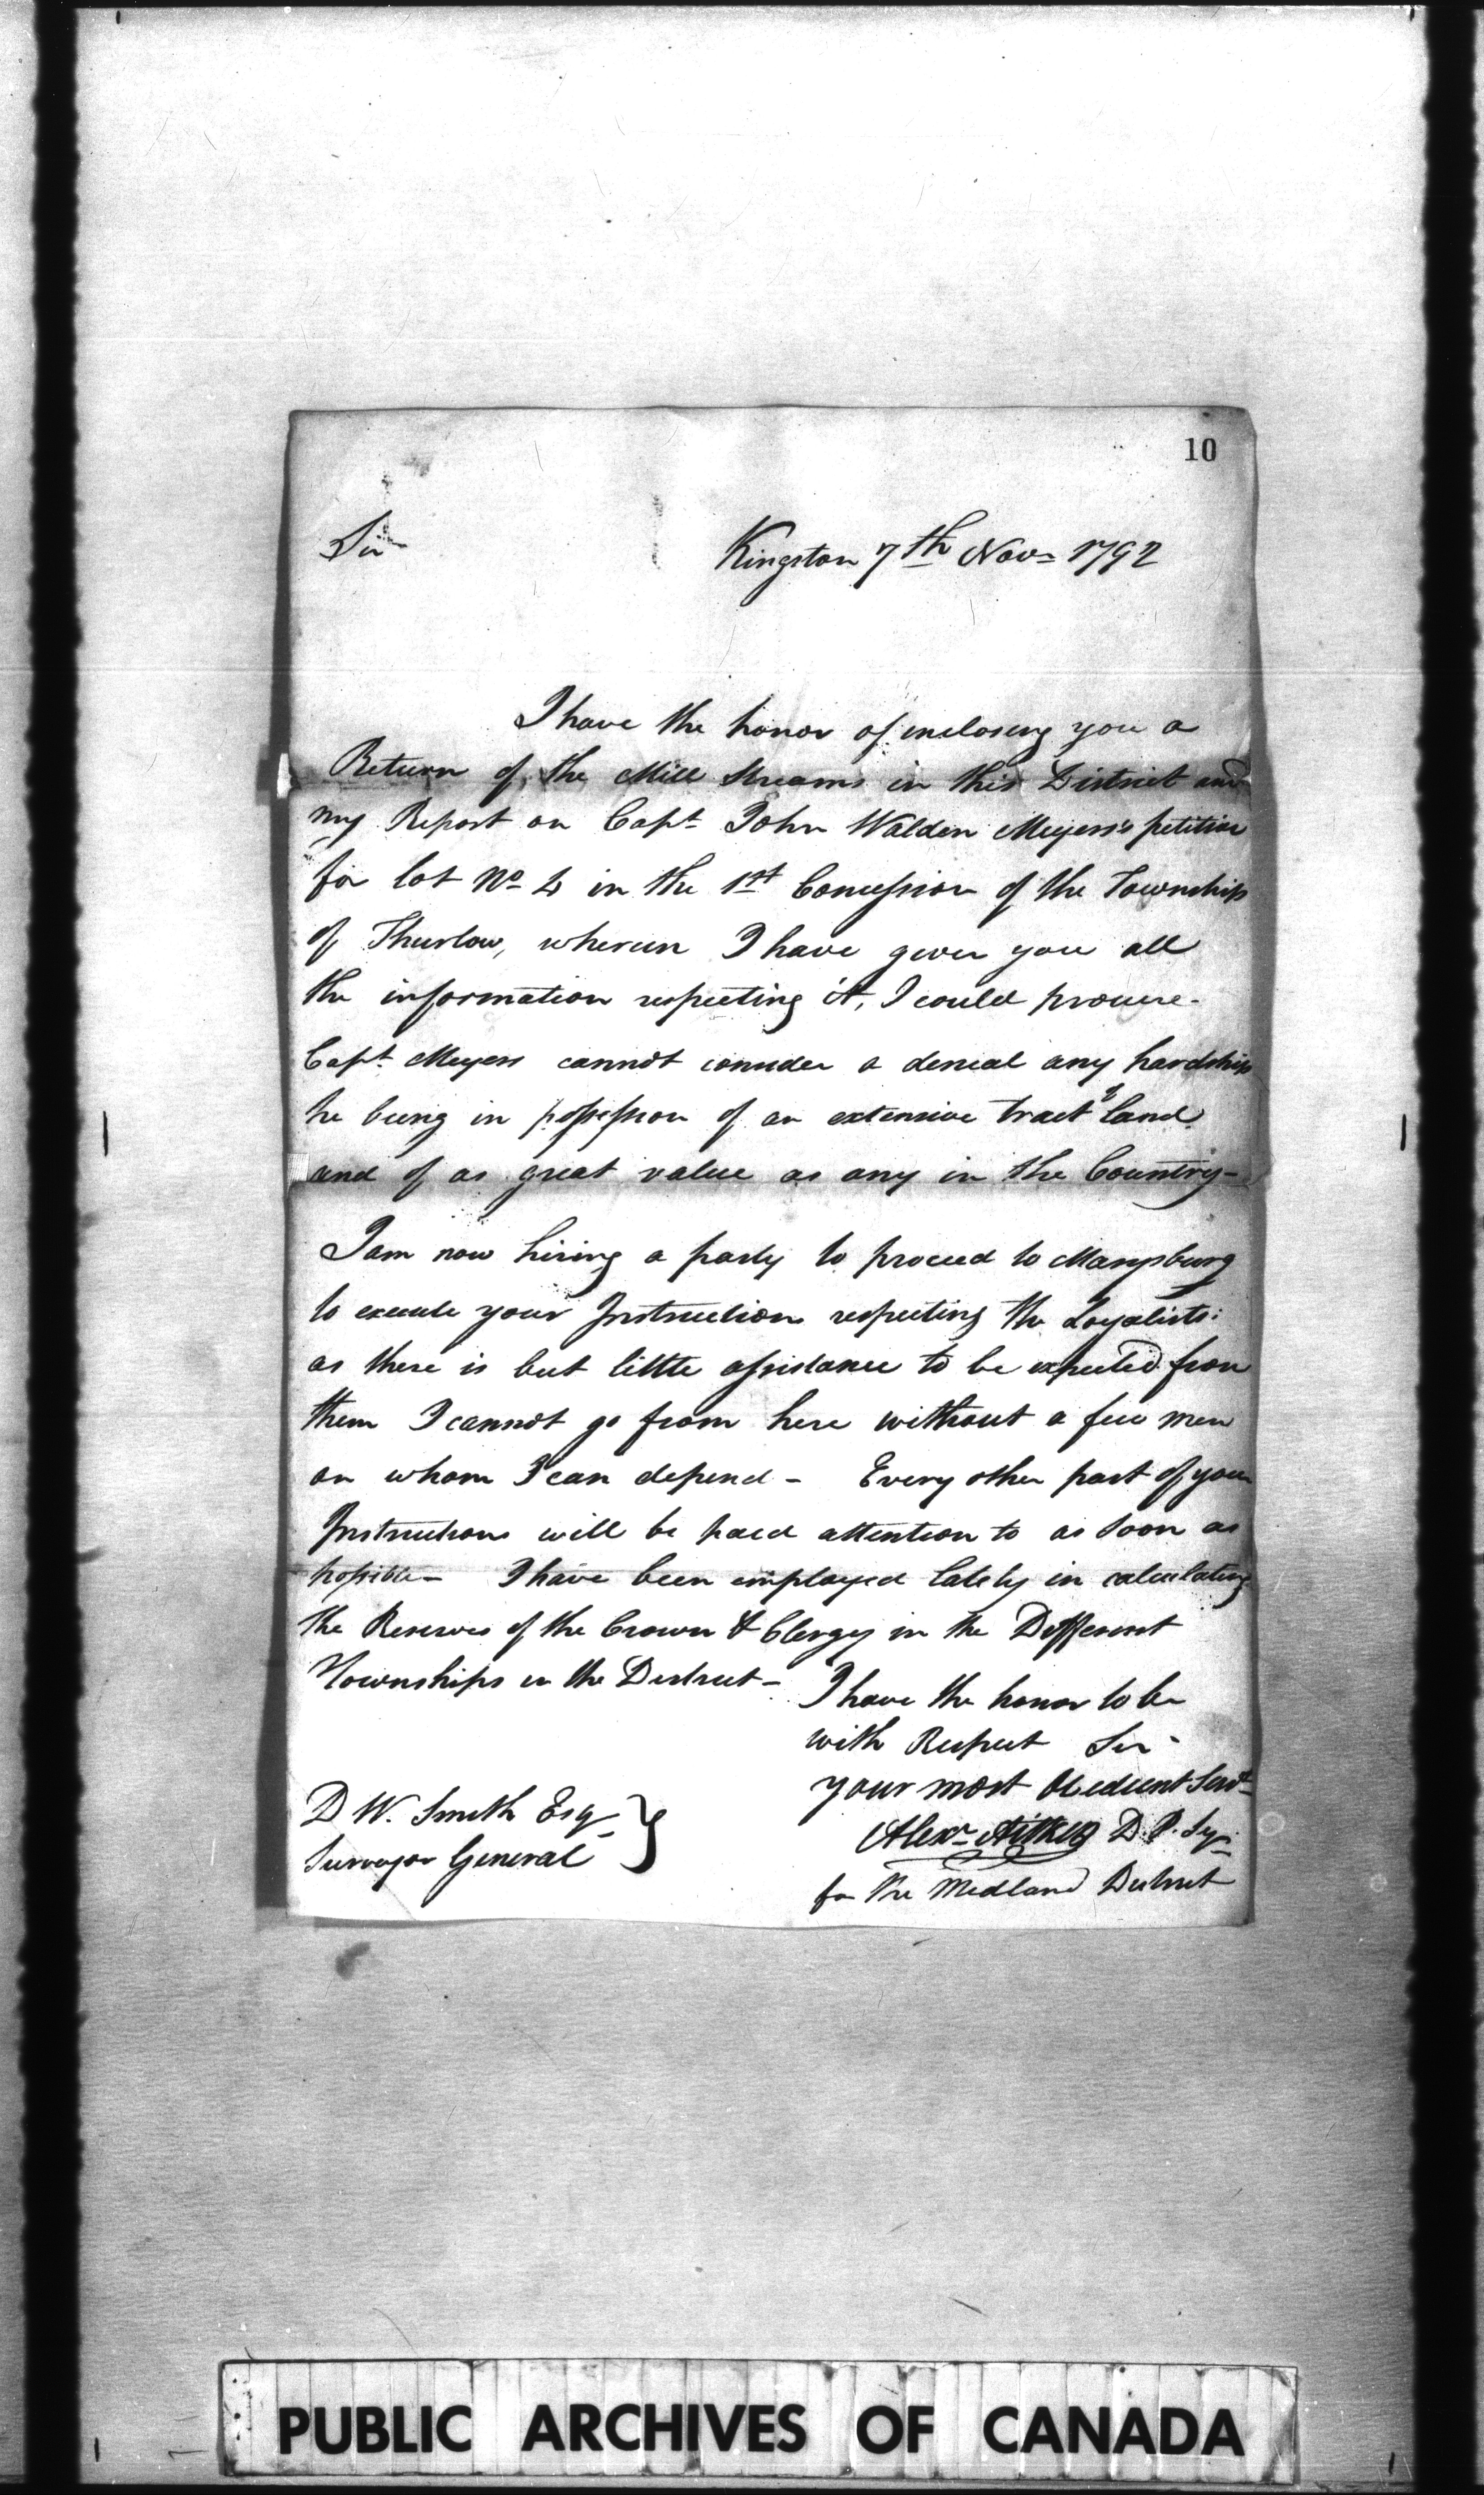 10
Sir
Kingston 7th Novr 1792
I have the honor of inclosing you a
Return of the Mill Streams in this District and
my Report on Capt. John Walden Meyers's petition
for lot No 4 in the 1st Concession of the Township
of Thurlow, wherein I have given you all
the information respecting it, I could procure-
Capt. Meyers cannot consider a denial any hardship
he being in possession of an extensive tract of land
and of as great value as any in the Country-
I am now hiring a party to proceed to Marysburg
to execute your Instructions respecting the Loyalists:
as there is but little assistance to be expected from
them I cannot go from here without a few men
on whom I can depend - Every other part of your
Instructions will be paid attention to as soon as
possible- I have been employed lately in calculating
the Reserves of the Crown & Clergy in the Different
Townships in the District-
I have the honor to be
with Respect Sir-
your most Obedient Servt
Alexr Aitken D. P. Syr
for the Midland District
D W. Smith Esqr }
Surveyor General
PUBLIC ARCHIVES OF CANADA